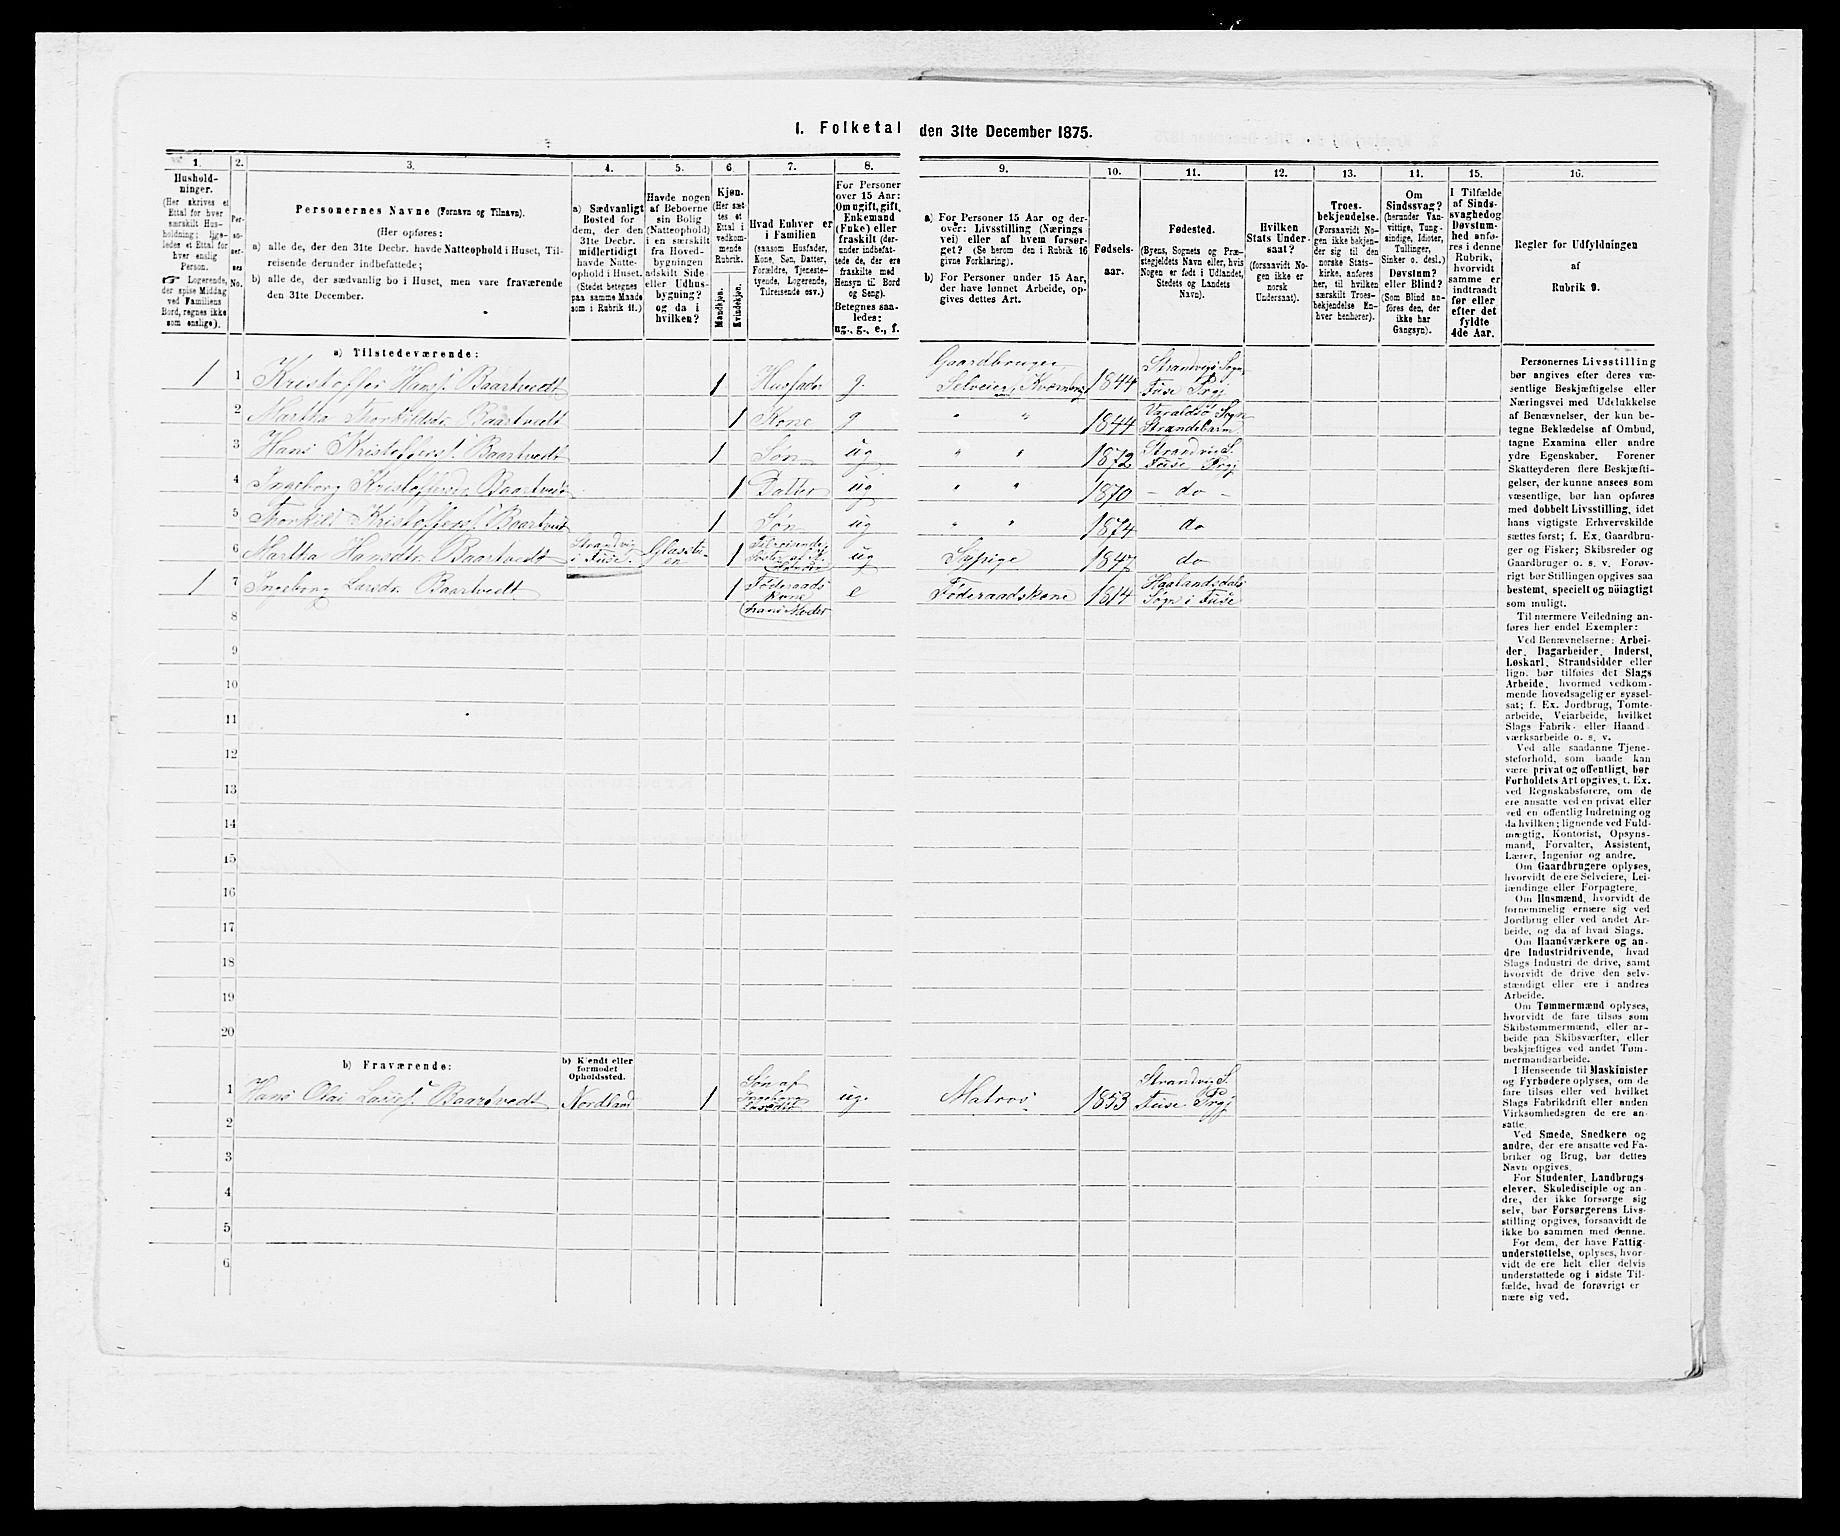 1. Folketal den 31te December 1875.
1. 2. 3. 4. 5. 6. 7. 8. 9. 10. 11. 12. 13. 14. 15. 16.
Hushold-
ninger.
(Her skrives et
Ettal for hver
særskilt Hus-
holdning; lige-
ledes et Ettal for
hver enslig
Person.
☞ Logerende,
der spise Middag
ved Familiens
Bord, regnes ikke
som enslige).
Per-
so-
ner-
nes
No.
Personernes Navne (Fornavn og Tilnavn).
(Her opføres:
a) alle de, der den 31te Decbr. havde Natteophold i Huset, Til-
reisende derunder indbefattede;
b) alle de, der sædvanlig bo i Huset, men vare fraværende
den 31te December.
a) Sædvanligt
Bosted for
dem, der den
31te Decbr.
midlertidigt
havde Natte-
ophold i Huset.
(Stedet betegnes
paa samme Maade
som i Rubrik 11.)
Havde nogen
af Beboerne
sin Bolig
(Natteophold)
i en særskilt
fra Hoved-
bygningen
adskilt Side-
eller Udhus-
bygning?
og da i
hvilken?
Kjøn.
(Her sæt-
tes et
Ettal i
vedkom-
mende
Rubrik.
Mandkjøn.
Kvindekjøn.
Hvad Enhver er
i Familien
(saasom Husfader,
Kone, Søn, Datter,
Forældre, Tjeneste-
tyende, Logerende,
Tilreisende osv.)
For Personer
over 15 Aar:
Om ugift, gift,
Enkemand
(Enke) eller
fraskilt (der-
under indbefat-
tede de, der ere
fraskilte med
Hensyn til Bord
og Seng).
Betegnes saa-
ledes:
ug., g., e., f.
a) For Personer 15 Aar og der-
over: Livsstilling (Nærings-
vei) eller af hvem forsør-
get? (Se herom den i Rubrik 16
givne Forklaring).
b) For Personer under 15 Aar,
der have lønnet Arbeide, op-
gives dettes Art.
Fødsels-
aar.
Fødested.
(Byens, Sognets og Præ-
stegjeldets Navn eller, hvis
Nogen er født i Udlandet,
Stedets og Landets
Navn).
Hvilken
Stats Under-
saat?
(forsaavidt No-
gen ikke er
norsk
Undersaat).
Troes-
bekjendelse.
(Forsaavidt No-
gen ikke bekjen-
der sig til den
norske Stats-
kirke, anføres
her, til hvilken
særskilt Troes-
bekjendelse En-
hver henhører).
Om
Sindssvag?
(herunder Van-
vittige, Tung-
sindige, Idioter,
Tullinger,
Sinker o. desl.)
Døvstum?
eller Blind?
(Som Blind an-
føres den, der
ikke har
Gangsyn).
I Tilfælde
af Sinds-
svaghed og
Døvstum-
hed anfø-
res i denne
Rubrik,
hvorvidt
samme er
indtraadt
før eller
efter det
fyldte
4de Aar.
Regler for Udfyldningen
af
Rubrik 9.
a) Tilstedeværende:
1 1 Kristoffer Hans. Baartvedt 1 Husfader g. Gaardbruger, Selveier, 1844 Strandvigs Sogn, Fuse Prgj
2 Martha Thorkildsdr. Baartvedt 1 Kone g " " 1844 Varaldsø Sogn Strandebarm
3 Hans Kristoffers. Baartvedt 1 Søn ug " " 1872 Strandvig S. Fuse Prgj
4 Ingeborg Kristoffersdr. Baartvedt 1 Datter ug " " 1870 - do -
5 Thorkild Kristoffers. Baartvedt 1 Søn ug " " 1874 do
6 Martha Hansdtr. Baartvedt Strandvig i Fuse. Glasstuen 1 Tilreisende, ug Sypige 1847 do
1 7 Ingeborg Larsdr. Baartvedt 1 Føderaads Kone (hans Moder e Føderaadskone 1814 Haalandsdals Sogn i Fuse
8
9
10
11
12
13
14
15
16
17
18
19
20
b) Fraværende:
b) Kjendt eller
formodet
Opholdssted.
1 Hans Olai Lasses. Baartvedt Nordland 1 Søn af Ingeborg Larsdtr ug. Matros 1853 Strandvig S. Fuse Prgj
2
3
4
5
6
Personernes Livsstilling
bør angives efter deres væ-
sentlige Beskjæftigelse eller
Næringsvei med Udelukkelse
af Benævnelser, der kun be-
tegne Beklædelse af Ombud,
tagne Examina eller andre
ydre Egenskaber. Forener
Skatteyderen flere Beskjæfti-
gelser, der kunne ansees som
væsentlige, bør han opføres
med dobbelt Livsstilling, idet
hans vigtigste Erhvervskilde
sættes først; f. Ex. Gaardbru-
ger og Fisker; Skibsreder og
Gaardbruger o. s. v. Forøv-
rigt bør Stillingen opgives saa
bestemt, specielt og nöiagtigt
som muligt.
Til nærmere Veiledning an-
føres her endel Exempler:
Ved Benævnelserne: Arbei-
der, Dagarbeider, Inderst,
Løskarl, Strandsidder eller
lign. bør tilføies det Slags
Arbeide, hvormed vedkom-
mende hovedsagelig er syssel-
sat; f. Ex. Jordbrug, Tomte-
arbeide, Veiarbeide, hvilket
Slags Fabrik- eller Haand-
værksarbeide o. s. v.
Ved alle saadanne Tjene-
steforhold, som baade kan
være privat og offentligt, bør
Forholdets Art opgives, t. Ex.
ved Regnskabsførere, om de
ere ansatte ved en privat eller
ved en offentlig Indretning og
da hvilken; lignende ved Fuld-
mægtig, Kontorist, Opsyns-
mand, Forvalter, Assistent,
Lærer, Ingeniør og andre.
Om Gaardbrugere oplyses,
hvorvidt de ere Selveiere, Lei-
lændinge eller Forpagtere.
Om Husmænd, hvorvidt de
fornemmelig ernære sig ved
Jordbrug eller ved andet Ar-
beide, og da af hvad Slags.
Om Haandværkere og an-
dre Industridrivende, hvad
Slags Industri de drive, samt
hvorvidt de drive den selv-
stændigt eller ere i andres
Arbeide.
Om Tømmermænd oplyses,
hvorvidt de fare tilsøs som
Skibstømmermænd, eller ar-
beide paa Skibsværfter, eller
beskjæftiges ved andet Tøm-
mermandsarbeide.
I Henseende til Maskinister
og Fyrbødere oplyses, om de
fare tilsøs eller ved hvilket
Slags Fabrikdrift eller anden
Virksomhedsgren de ere an-
satte.
Ved Smede, Snedkere og
andre, der ere ansatte ved Fa-
briker og Brug, bør dettes
Navn opgives.
For Studenter, Landbrugs-
elever, Skoledisciple og an-
dre, der ikke forsørge sig
selv, bør Forsørgerens Livs-
stilling opgives, forsaavidt de
ikke bo sammen med denne.
For dem, der have Fattig-
understøttelse, oplyses, hvor-
vidt de ere helt eller delvis
understøttede og i sidste Til-
fælde, hvad de forøvrigt er-
nære sig ved.